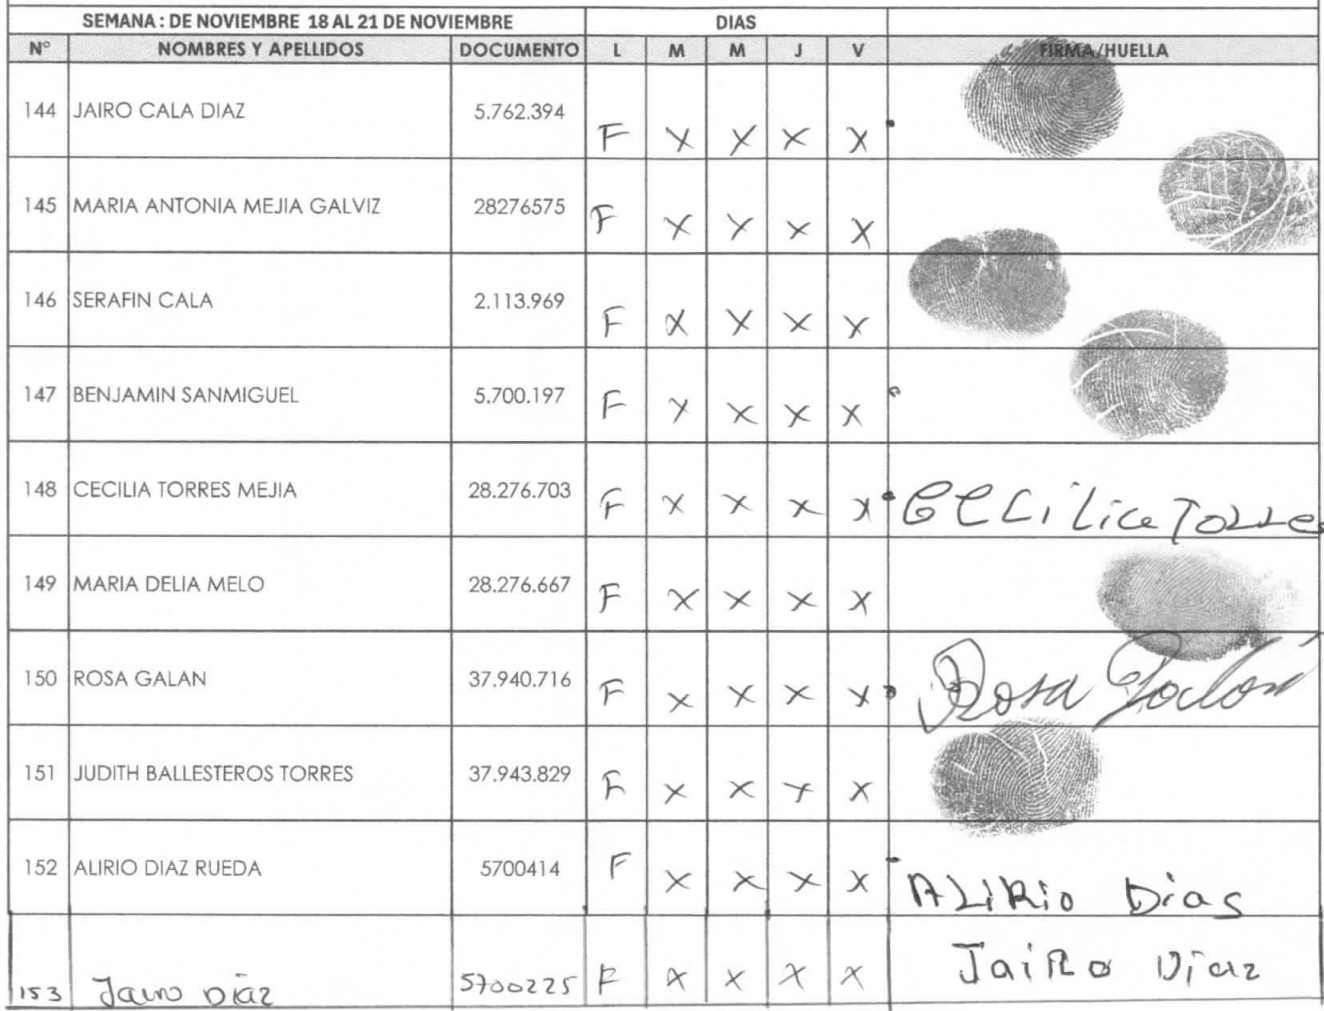 SEMANA : DE NOVIEMBRE 18 AL 21 DE NOVIEMBRE DIAS
N° NOMBRES Y APELLIDOS DOCUMENTO L M M J V FIRMA/HUELLA
144 JAIRO CALA DIAZ 5.762.394 F X X X X
145 MARIA ANTONIA MEJIA GALVIZ 28276575 F X X X X
146 SERAFIN CALA 2.113.969 F X X X X
147 BENJAMIN SANMIGUEL 5.700.197 F X X X X
148 CECILIA TORRES MEJIA 28.276.703 F X X X X CECiLia Torres
149 MARIA DELIA MELO 28.276.667 F X X X X
150 ROSA GALAN 37.940.716 F X X X X Rosa Galán
151 JUDITH BALLESTEROS TORRES 37.943.829 F X X X X
152 ALIRIO DIAZ RUEDA 5700414 F X X X X ALiRio Dias
153 Jairo Diaz 5700225 F X X X X JaiRo Diaz